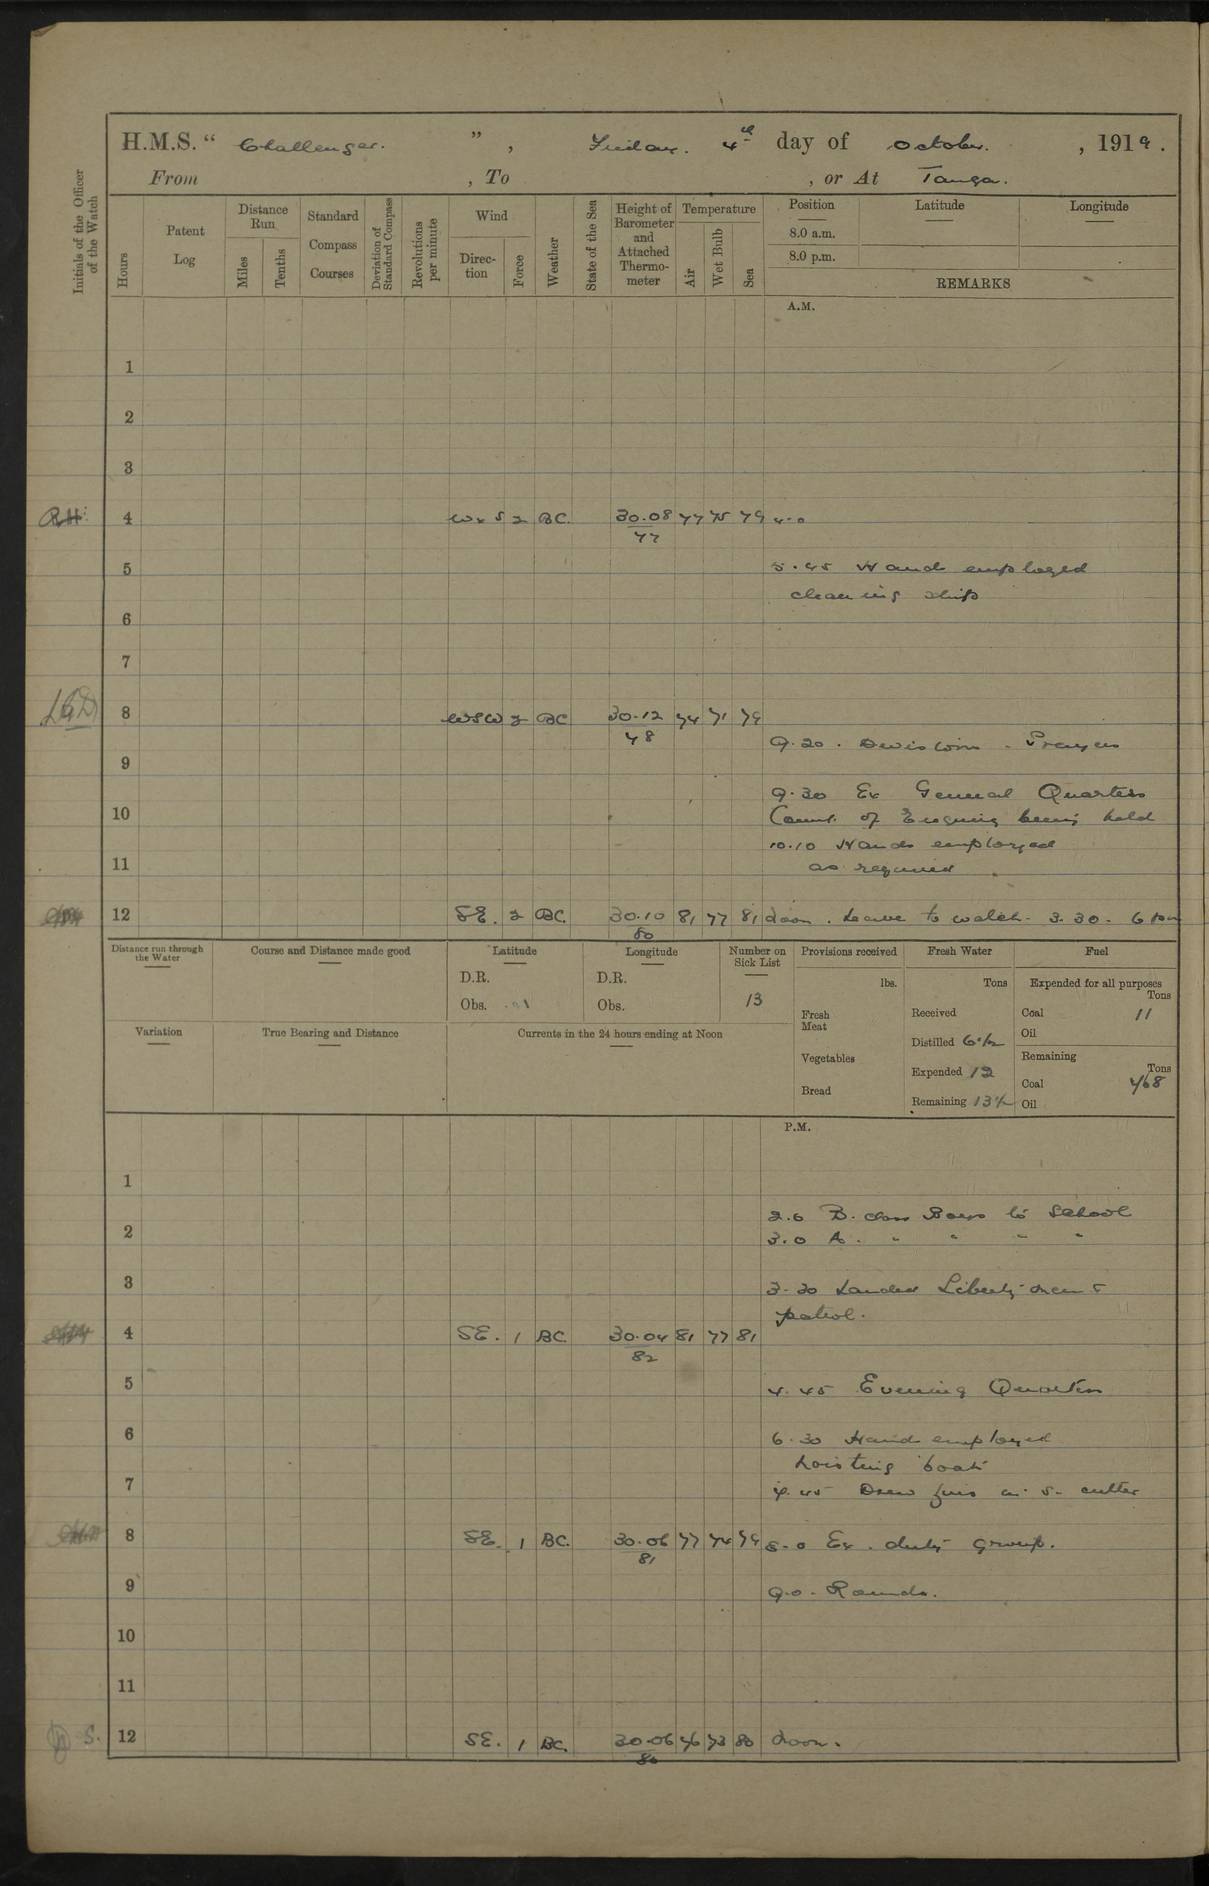 H.M.S. “ Challenger. ”, Friday. 4th day of October. , 1919.
From , To , or At Tanga.
Initials of the Officer of the Watch
Hours
Patent Log
Distance Run
Miles
Tenths
Standard Compass Courses
Deviation of Standard Compass
Revolutions per minute
Wind
Direction
Force
Weather
State of the Sea
Height of Barometer and Attached Thermometer
Temperature
Air
Wet Bulb
Sea
Position
8.0 a.m.
8.0 p.m.
Latitude
Longitude
REMARKS
A.M.
1
2
3
4 WxS 2 BC. 30.08 77 75 79 4.0
77
5 5.45 Hands employed
cleaning ship
6
7
8 WSW 2 BC 30.12 74 71 79
78
9.20. Divisions. Prayers
9
9.30 Ex General Quarters
10 Court. of Enquiry being held
10.10 Hands employed
11 as required
12 SE. 2 BC. 30.10 81 77 81 noon. Leave to watch. 3.30. 6 pm
80
Distance run through the Water
Course and Distance made good
Latitude
D.R.
Obs.
Longitude
D.R.
Obs.
Number on Sick List
13
Provisions received
lbs.
Fresh Meat
Vegetables
Bread
Fresh Water
Tons
Received
Distilled 6½
Expended 12
Remaining 13½
Fuel
Expended for all purposes
Tons
Coal 11
Oil
Remaining
Tons
Coal 468
Oil
Variation
True Bearing and Distance
Currents in the 24 hours ending at Noon
P.M.
1
2.0 B. class Boys to School
2 3.0 A. " " " "
3 3.30 Landed Liberty men &
patrol.
4 SE. 1 BC. 30.04 81 77 81
82
5 4.45 Evening Quarters
6 6.30 Hands employed
hoisting boats
7 cutter
8 SE. 1 BC. 30.06 77 74 79 8.0 Ex. duty group.
81
9 9.0. Rounds.
10
11
12 SE. 1 BC. 30.06 76 73 80
80